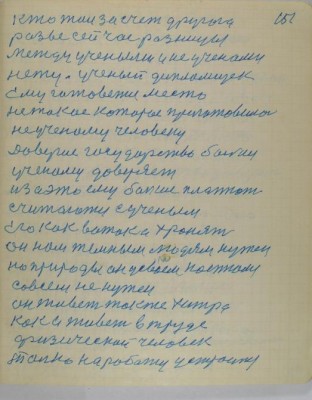 151
кто жил за счет другога
разве сейчас разницы
между ученыим и не ученаму
нету. ученый дипломщек
ему гатовети место
не такое которое приготовила
неученому человеку
Доверие государство более
ученому доверяет
из а эта ему больше платют
считают ученым
его как волока хронят
он нам темным людям нужен
но природы он
совсем не нужен
он живет также хитра
как и живет в труде
физической человек
толко на работу устроит